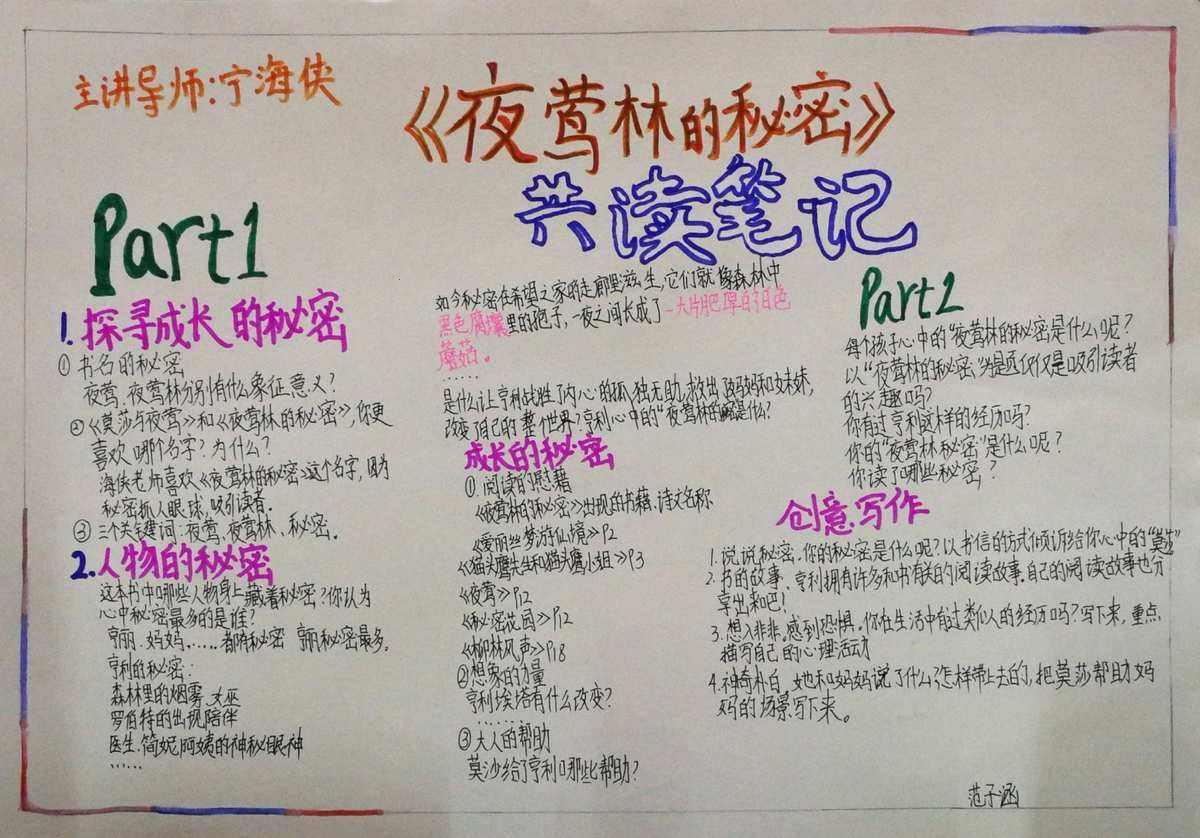 主讲导师:宁海侠
《夜莺林的秘密》
共读笔记
Part1
1.探寻成长的秘密
① 书名的秘密
夜莺、夜莺林分别有什么象征意义?
②《莫莎与夜莺》和《夜莺林的秘密》,你更
喜欢哪个名字?为什么?
海侠老师喜欢《夜莺林的秘密》这个名字,因为
秘密抓人眼球,吸引读者。
③ 三个关键词:夜莺、夜莺林、秘密。
2.人物的秘密
这本书中哪些人物身上藏着秘密?你认为
心中秘密最多的是谁?
亨丽、妈妈、……都有秘密 亨丽秘密最多。
亨利的秘密:
森林里的烟雾、女巫
罗伯特的出现陪伴
医生、简妮阿姨的神秘眼神
……
如今秘密在希望之家的走廊里滋生,它们就像森林中
黑色腐壤里的孢子,一夜之间长成了一大片肥厚的白色
蘑菇。
……
是什么让亨利战胜了内心的孤独无助,救出了妈妈和妹妹,
改变了自己的整个世界?亨利心中的"夜莺林的秘密是什么?
成长的秘密
①阅读的慰藉
《夜莺林的秘密》出现的书籍、诗文名称
《爱丽丝梦游仙境》P2
《猫头鹰先生和猫头鹰小姐》P3
《夜莺》P12
《秘密花园》P12
《柳林风声》P18
②想象的力量
亨利埃塔有什么改变?
……
③大人的帮助
莫沙给了亨利哪些帮助?
Part2
每个孩子心中的"夜莺林的秘密是什么呢?
以"夜莺林的秘密"为是仅仅是吸引读者
的兴趣吗?
你有过亨利这样的经历吗?
你的"夜莺林秘密"是什么呢?
你读了哪些秘密?
创意写作
1.说说秘密。你的秘密是什么呢?以书信的方式倾诉给你心中的"莫莎"
2.书的故事、亨利拥有许多和书有关的阅读故事,自己的阅读故事也分
享出来吧!
3.想入非非。感到恐惧。你在生活中有过类似人的经历吗?写下来,重点
描写自己的心理活动
4.神奇朴白,她和妈妈说了什么,怎样带上去的,把莫莎帮助妈
妈的场景写下来。
范子涵